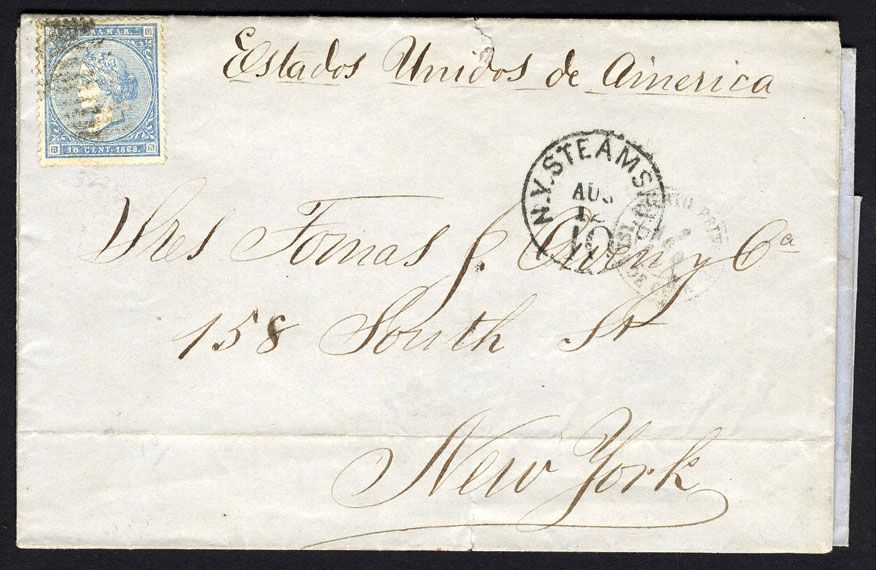 Estados Unidos de America
10 CENT. 1868
N.Y. STEAMSHIP
AUG
12
10
Sres Tomas J. Owen y Cª
158 South St
New York